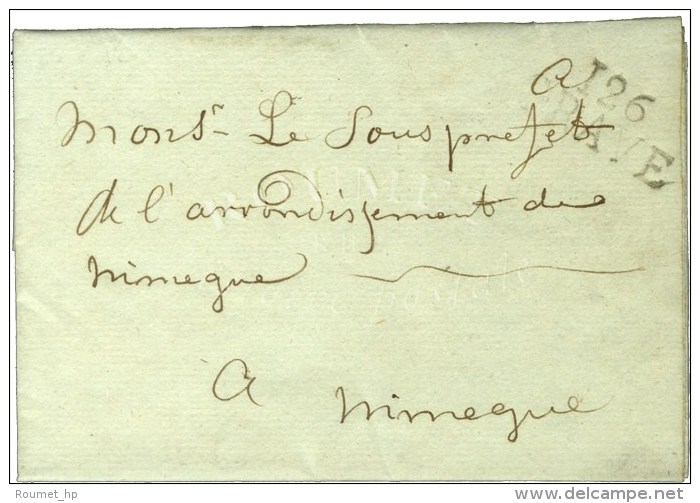 a
126
GRAVE
Monsr Le Sousprefet
de l'arrondissement de
nimegue
A
nimegue
Roumet_hp
© www.delcampe.net